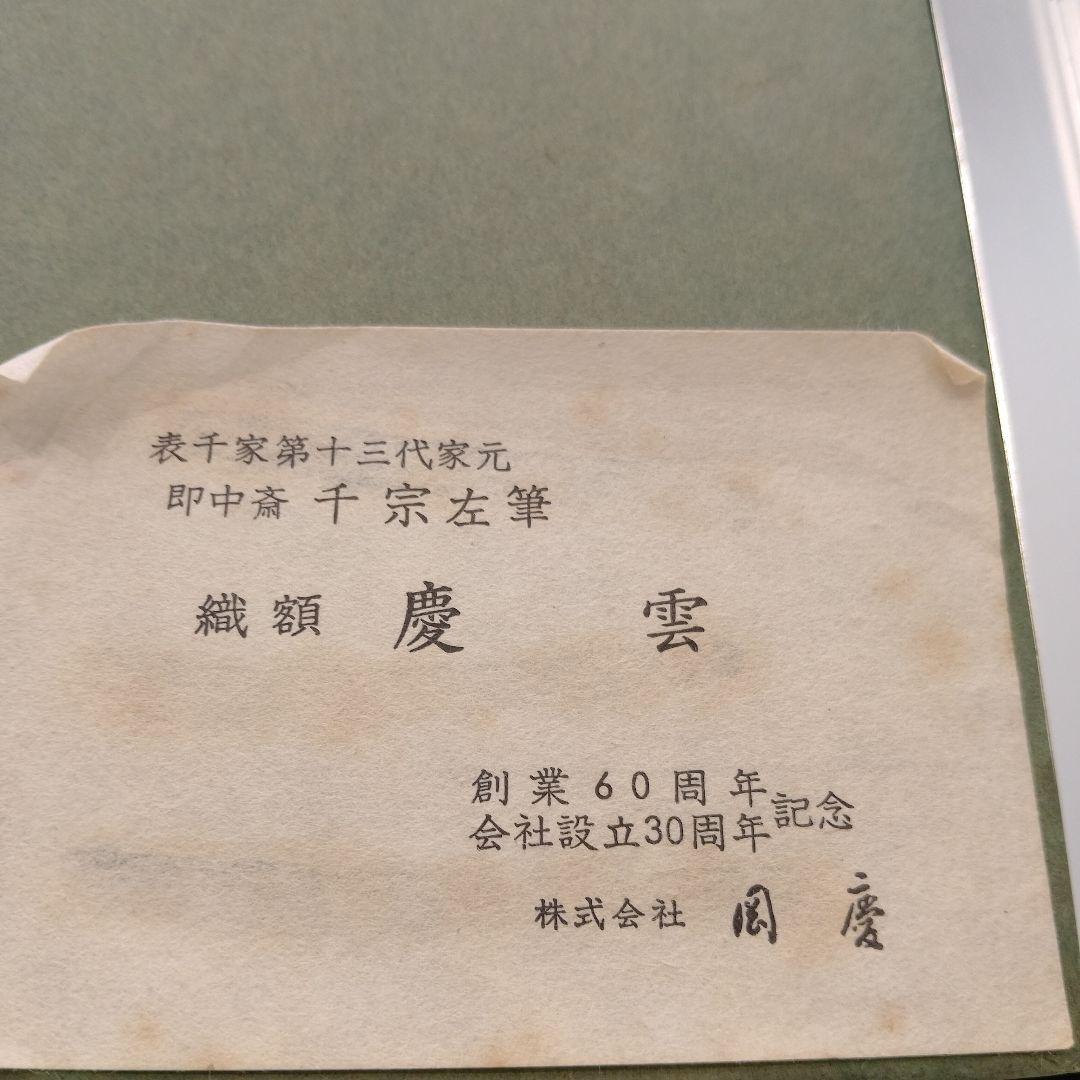 表千家第十三代家元
即中斎 千宗左筆
織額 慶雲
創業60周年
会社設立30周年記念
株式会社 岡慶